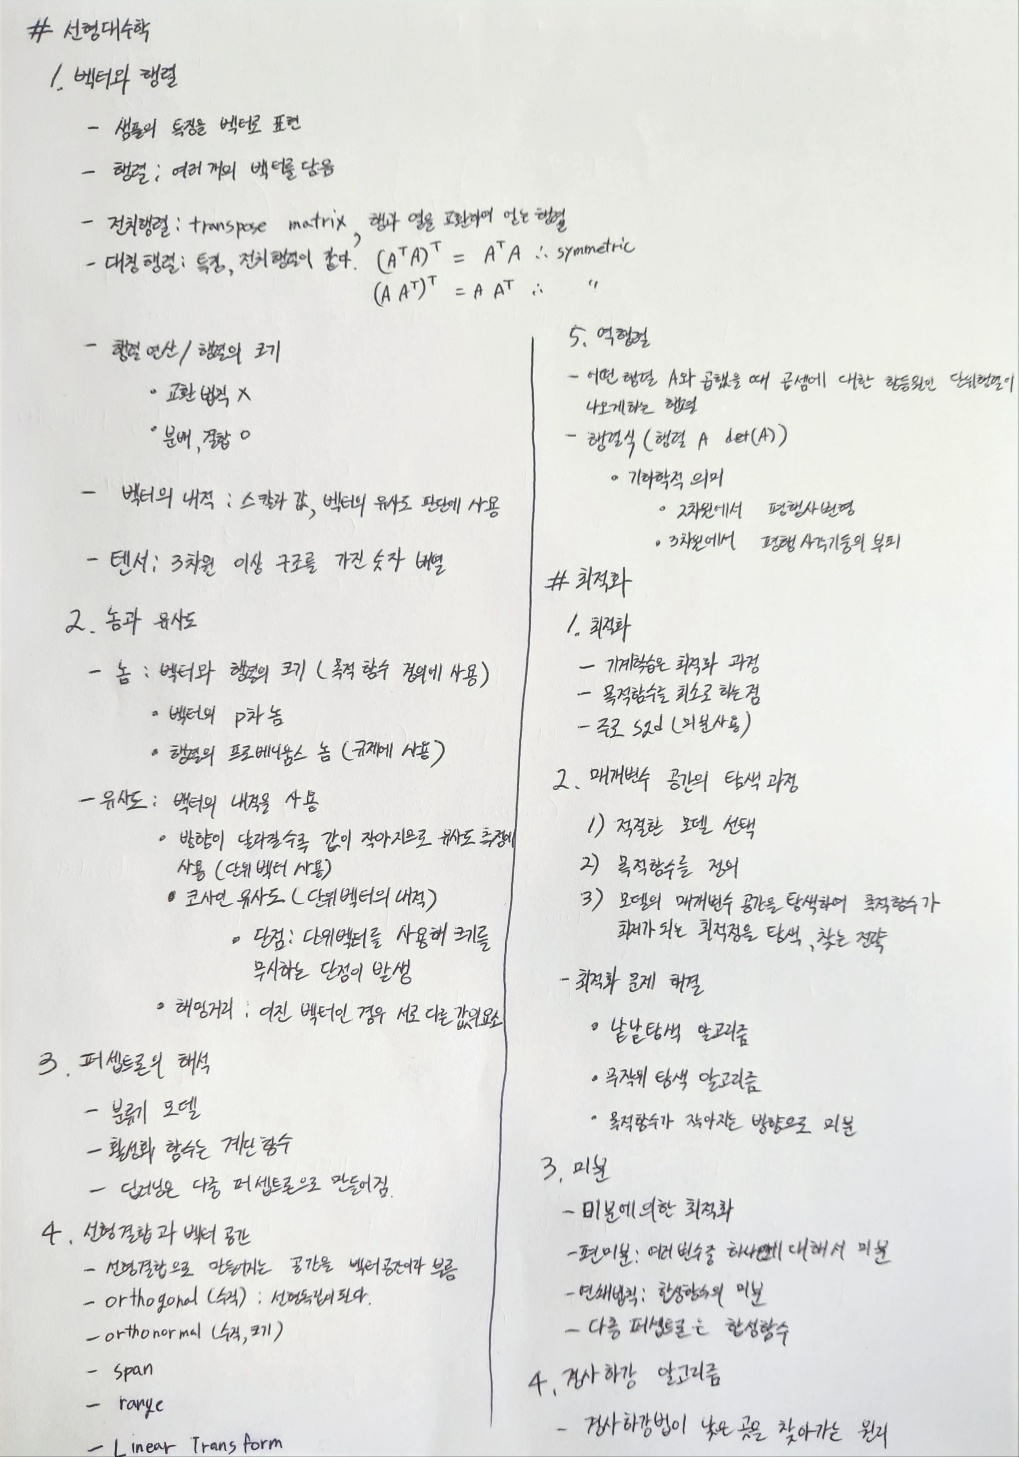 # 선형대수학
1. 벡터와 행렬
- 샘플의 특징을 벡터로 표현
- 행렬 ; 여러 개의 벡터를 담음
- 전치행렬 : transpose matrix, 행과 열을 교환하여 얻는 행렬
- 대칭행렬 : 특징, 전치행렬이 같다. (AᵀA)ᵀ = AᵀA ∴ symmetric
(A Aᵀ)ᵀ = A Aᵀ ∴ "
- 행렬 연산 / 행렬의 크기
• 교환 법칙 X
• 분배, 결합 O
- 벡터의 내적 : 스칼라 값, 벡터의 유사도 판단에 사용
- 텐서 ; 3차원 이상 구조를 가진 숫자 배열
2. 놈과 유사도
- 놈 : 벡터와 행렬의 크기 (목적 함수 정의에 사용)
• 벡터의 p차 놈
• 행렬의 프로베니우스 놈 (규제에 사용)
- 유사도 : 벡터의 내적을 사용
• 방향이 달라질수록 값이 작아지므로 유사도 측정에
사용 (단위 벡터 사용)
• 코사인 유사도 (단위벡터의 내적)
• 단점 : 단위벡터를 사용해 크기를
무시하는 단점이 발생
• 해밍거리 : 이진 벡터인 경우 서로 다른 값의 요소
3. 퍼셉트론의 해석
- 분류기 모델
- 활성화 함수는 계단 함수
- 딥러닝은 다중 퍼셉트론으로 만들어짐.
4. 선형결합과 벡터 공간
- 선형결합으로 만들어지는 공간을 벡터공간이라 부름
- orthogonal (수직) : 선형독립이 된다.
- orthonormal (수직, 크기)
- span
- range
- Linear Transform
5. 역행렬
- 어떤 행렬 A와 곱했을 때 곱셈에 대한 항등원인 단위행렬이
나오게하는 행렬
- 행렬식 (행렬 A det(A))
• 기하학적 의미
• 2차원에서 평행사변형
• 3차원에서 평행 사각기둥의 부피
# 최적화
1. 최적화
- 기계학습은 최적화 과정
- 목적함수를 최소로 하는점
- 주로 sgd (미분사용)
2. 매개변수 공간의 탐색 과정
1) 적절한 모델 선택
2) 목적함수를 정의
3) 모델의 매개변수 공간을 탐색하여 목적함수가
최저가 되는 최적점을 탐색, 찾는 전략
- 최적화 문제 해결
• 낱낱탐색 알고리즘
• 무작위 탐색 알고리즘
• 목적함수가 작아지는 방향으로 미분
3. 미분
- 미분에 의한 최적화
- 편미분 : 여러변수중 하나에 대해서 미분
- 연쇄법칙 : 합성함수의 미분
- 다층 퍼셉트론은 합성함수
4. 경사 하강 알고리즘
- 경사 하강법이 낮은 곳을 찾아가는 원리